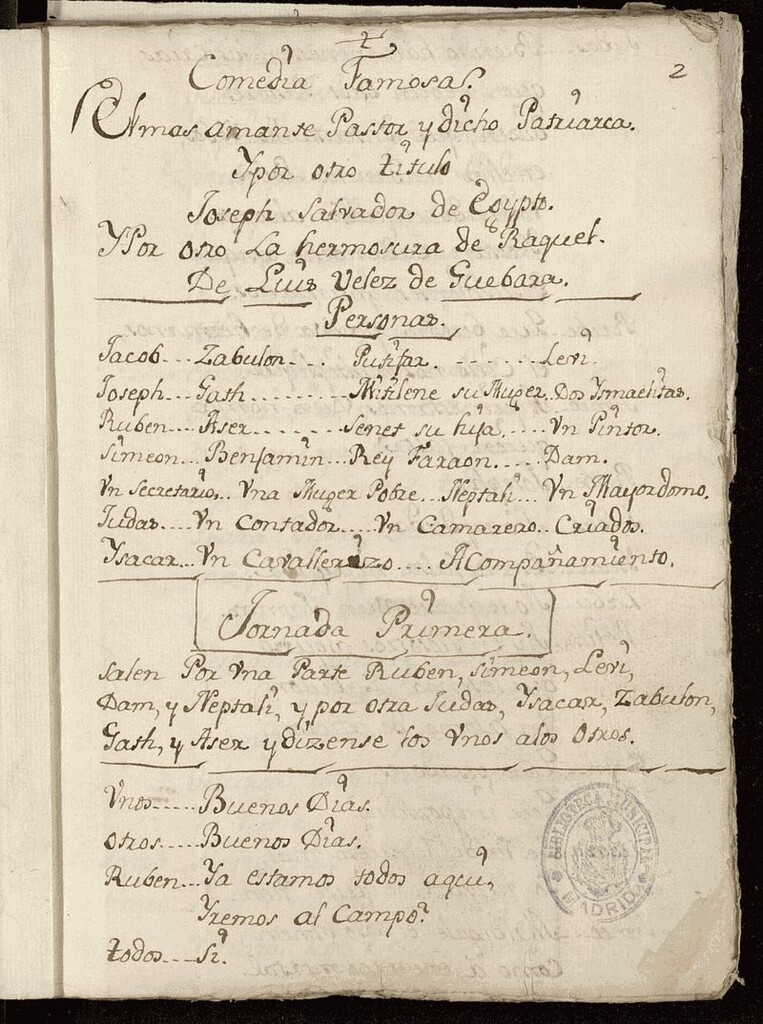 2
Comedia Famosa.
El mas amante Pastor y dicho Patriarca.
Y por otro titulo
Joseph Salvador de Egypto.
Y Por otro La hermosura de Raquel.
De Luis Velez de Guebara.
Personas.
Jacob... Zabulon... Putifar....... Levi.
Joseph... Gath......... Mitilene su Muger.. Dos Ysmaelitas.
Ruben... Aser....... Senet su hija..... Vn Pintor.
Simeon... Benjamin... Rey Faraon..... Dam.
Vn Secretario... Vna Muger Pobre... Neptali... Vn Mayordomo.
Judas.... Vn Contador.... Vn Camarero.. Criados.
Ysacar... Vn Cavallerizo.... Acompañamiento.
Jornada Primera.
Salen Por Vna Parte Ruben, Simeon, Levi,
Dam, y Neptali, y por otra Judas, Ysacar, Zabulon,
Gath, y Aser y dizense los Vnos a los Otros.
Vnos..... Buenos Dias.
Otros.... Buenos Dias.
Ruben... Ya estamos todos aqui,
Yremos al Campo?
todos.... Si.
BIBLIOTECA MUNICIPAL
MADRID